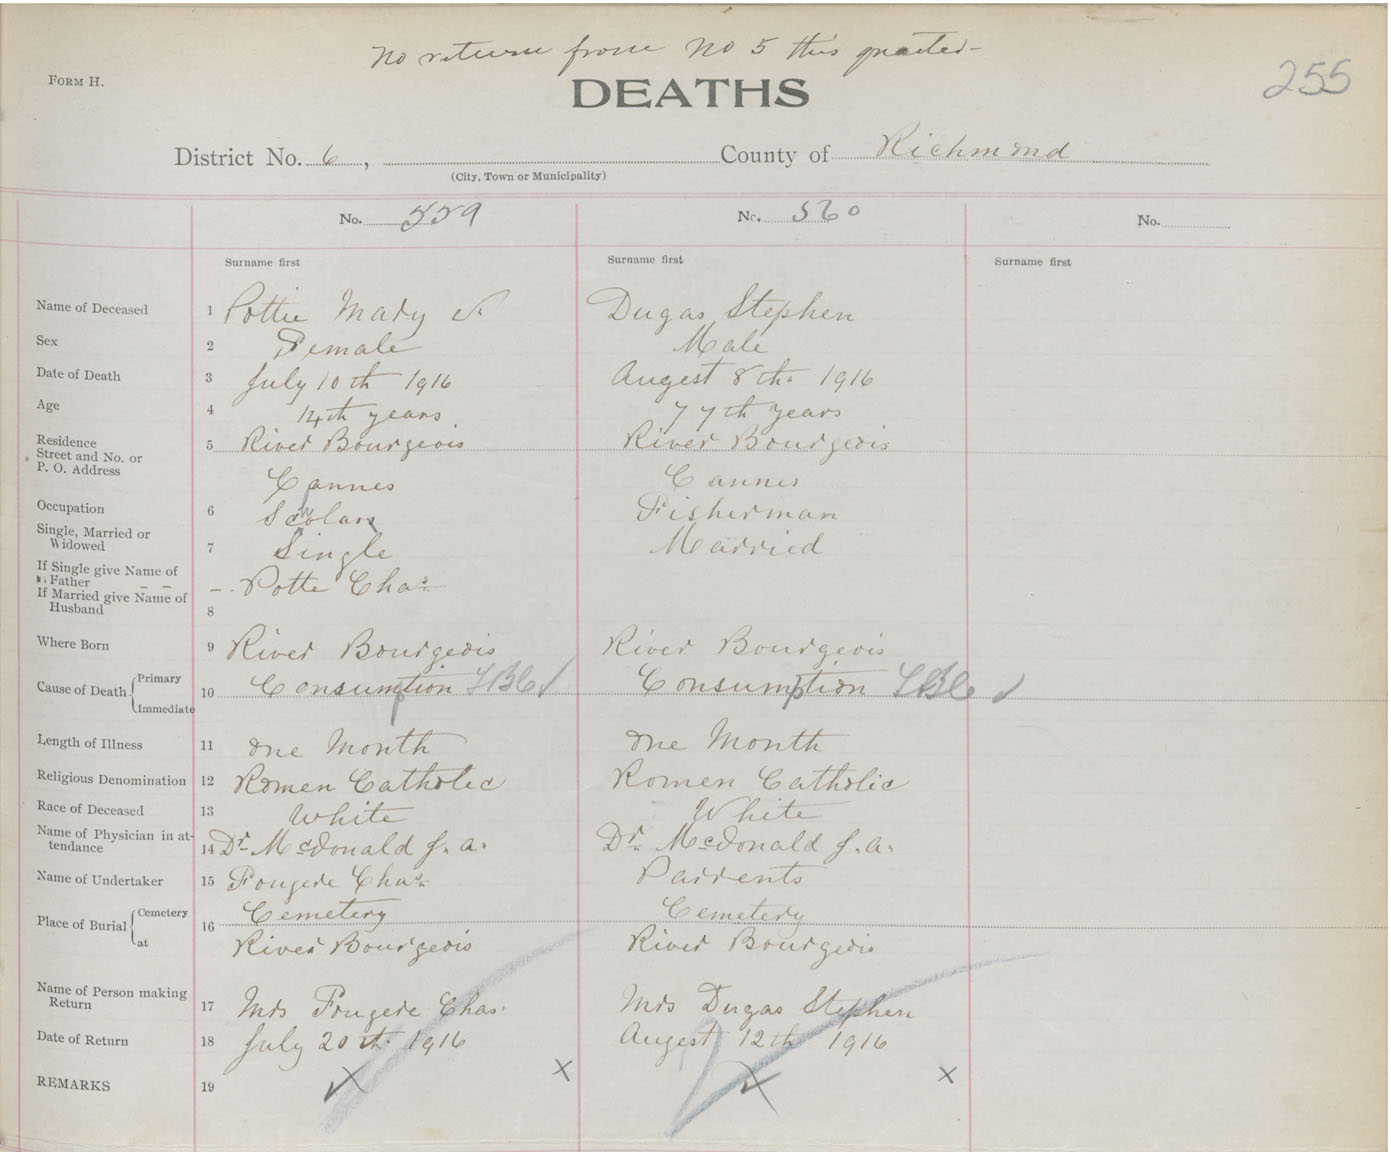 No return from No 5 this quarter
FORM H.
DEATHS
255
District No. 6, County of Richmond
(City, Town or Municipality)
No. 559 No. 560 No.
Surname first Surname first Surname first
Name of Deceased 1 Pottie Mary Dugas Stephen
Sex 2 Female Male
Date of Death 3 July 10th 1916 Augest 8th. 1916
Age 4 14th years 77th years
Residence Street and No. or P. O. Address 5 River Bourgeois River Bourgeois
Cannes Cannes
Occupation 6 Scholar Fisherman
Single, Married or Widowed 7 Single Married
If Single give Name of Father — Potte Chas
If Married give Name of Husband 8
Where Born 9 River Bourgeois River Bourgeois
Cause of Death Primary Immediate 10 Consumption TBC Consumption TBC
Length of Illness 11 one Month one Month
Religious Denomination 12 Romen Catholec Romen Catholic
Race of Deceased 13 White White
Name of Physician in attendance 14 Dr. McDonald J. A. Dr. McDonald J. A.
Name of Undertaker 15 Fougere Chas Parrents
Place of Burial Cemetery 16 Cemetery Cemetery
at River Bourgeois River Bourgeois
Name of Person making Return 17 Mrs Fougere Chas. Mrs Dugas Stephen
Date of Return 18 July 20th. 1916 Augest 12th 1916
REMARKS 19 x x x x